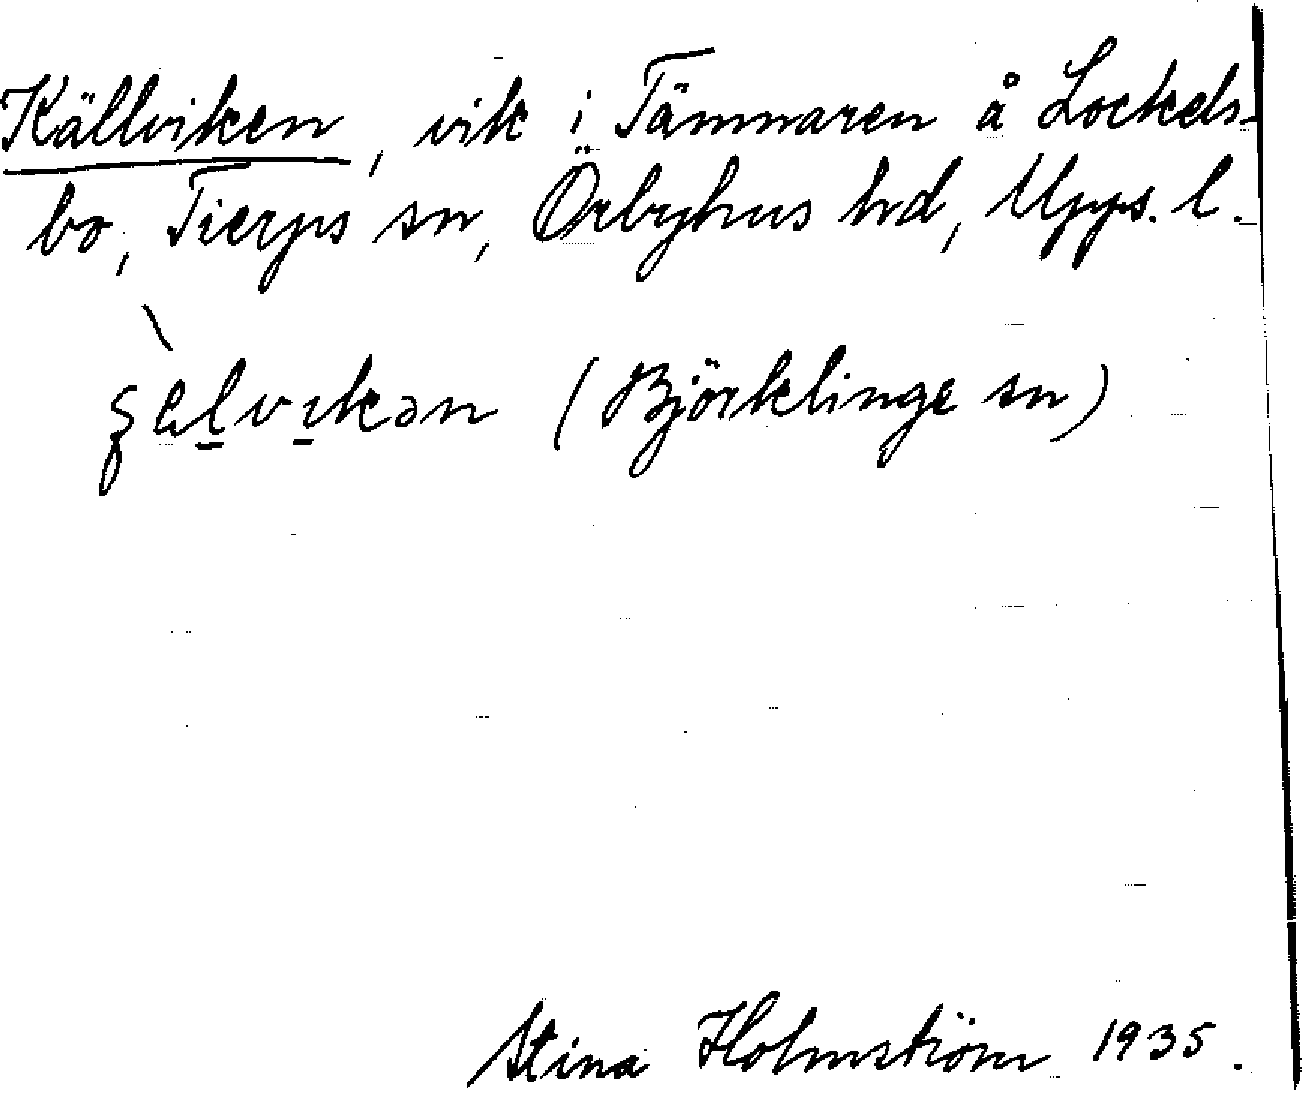 Källviken, vik i Tämnaren å Lockels-
bo, Tierps sn, Örbyhus hd, Upps. l.
(Björklinge sn)
Stina Holmström 1935.